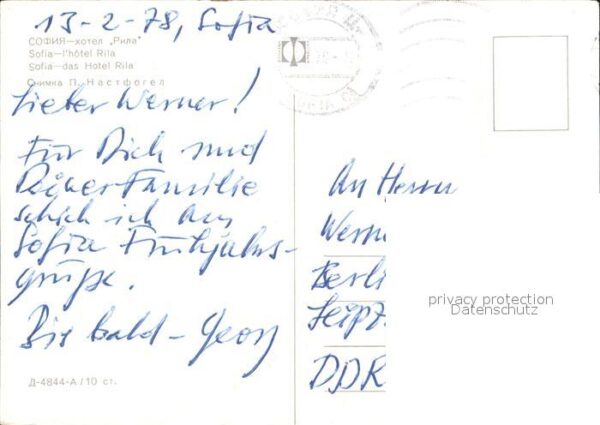 13-2-78, Sofia
СОФИЯ—хотел „Рила"
Sofia—l'hôtel Rila
Sofia—das Hotel Rila
Снимка П. Настфогел
Lieber Werner!
Für Dich und
Deiner Familie
schick ich aus
Sofia Frühjahrs-
grüße.
Bis bald – Georg
Д-4844-А/10 ст.
An Herrn
Wern
Berli
Leipz.
DDR
privacy protection
Datenschutz